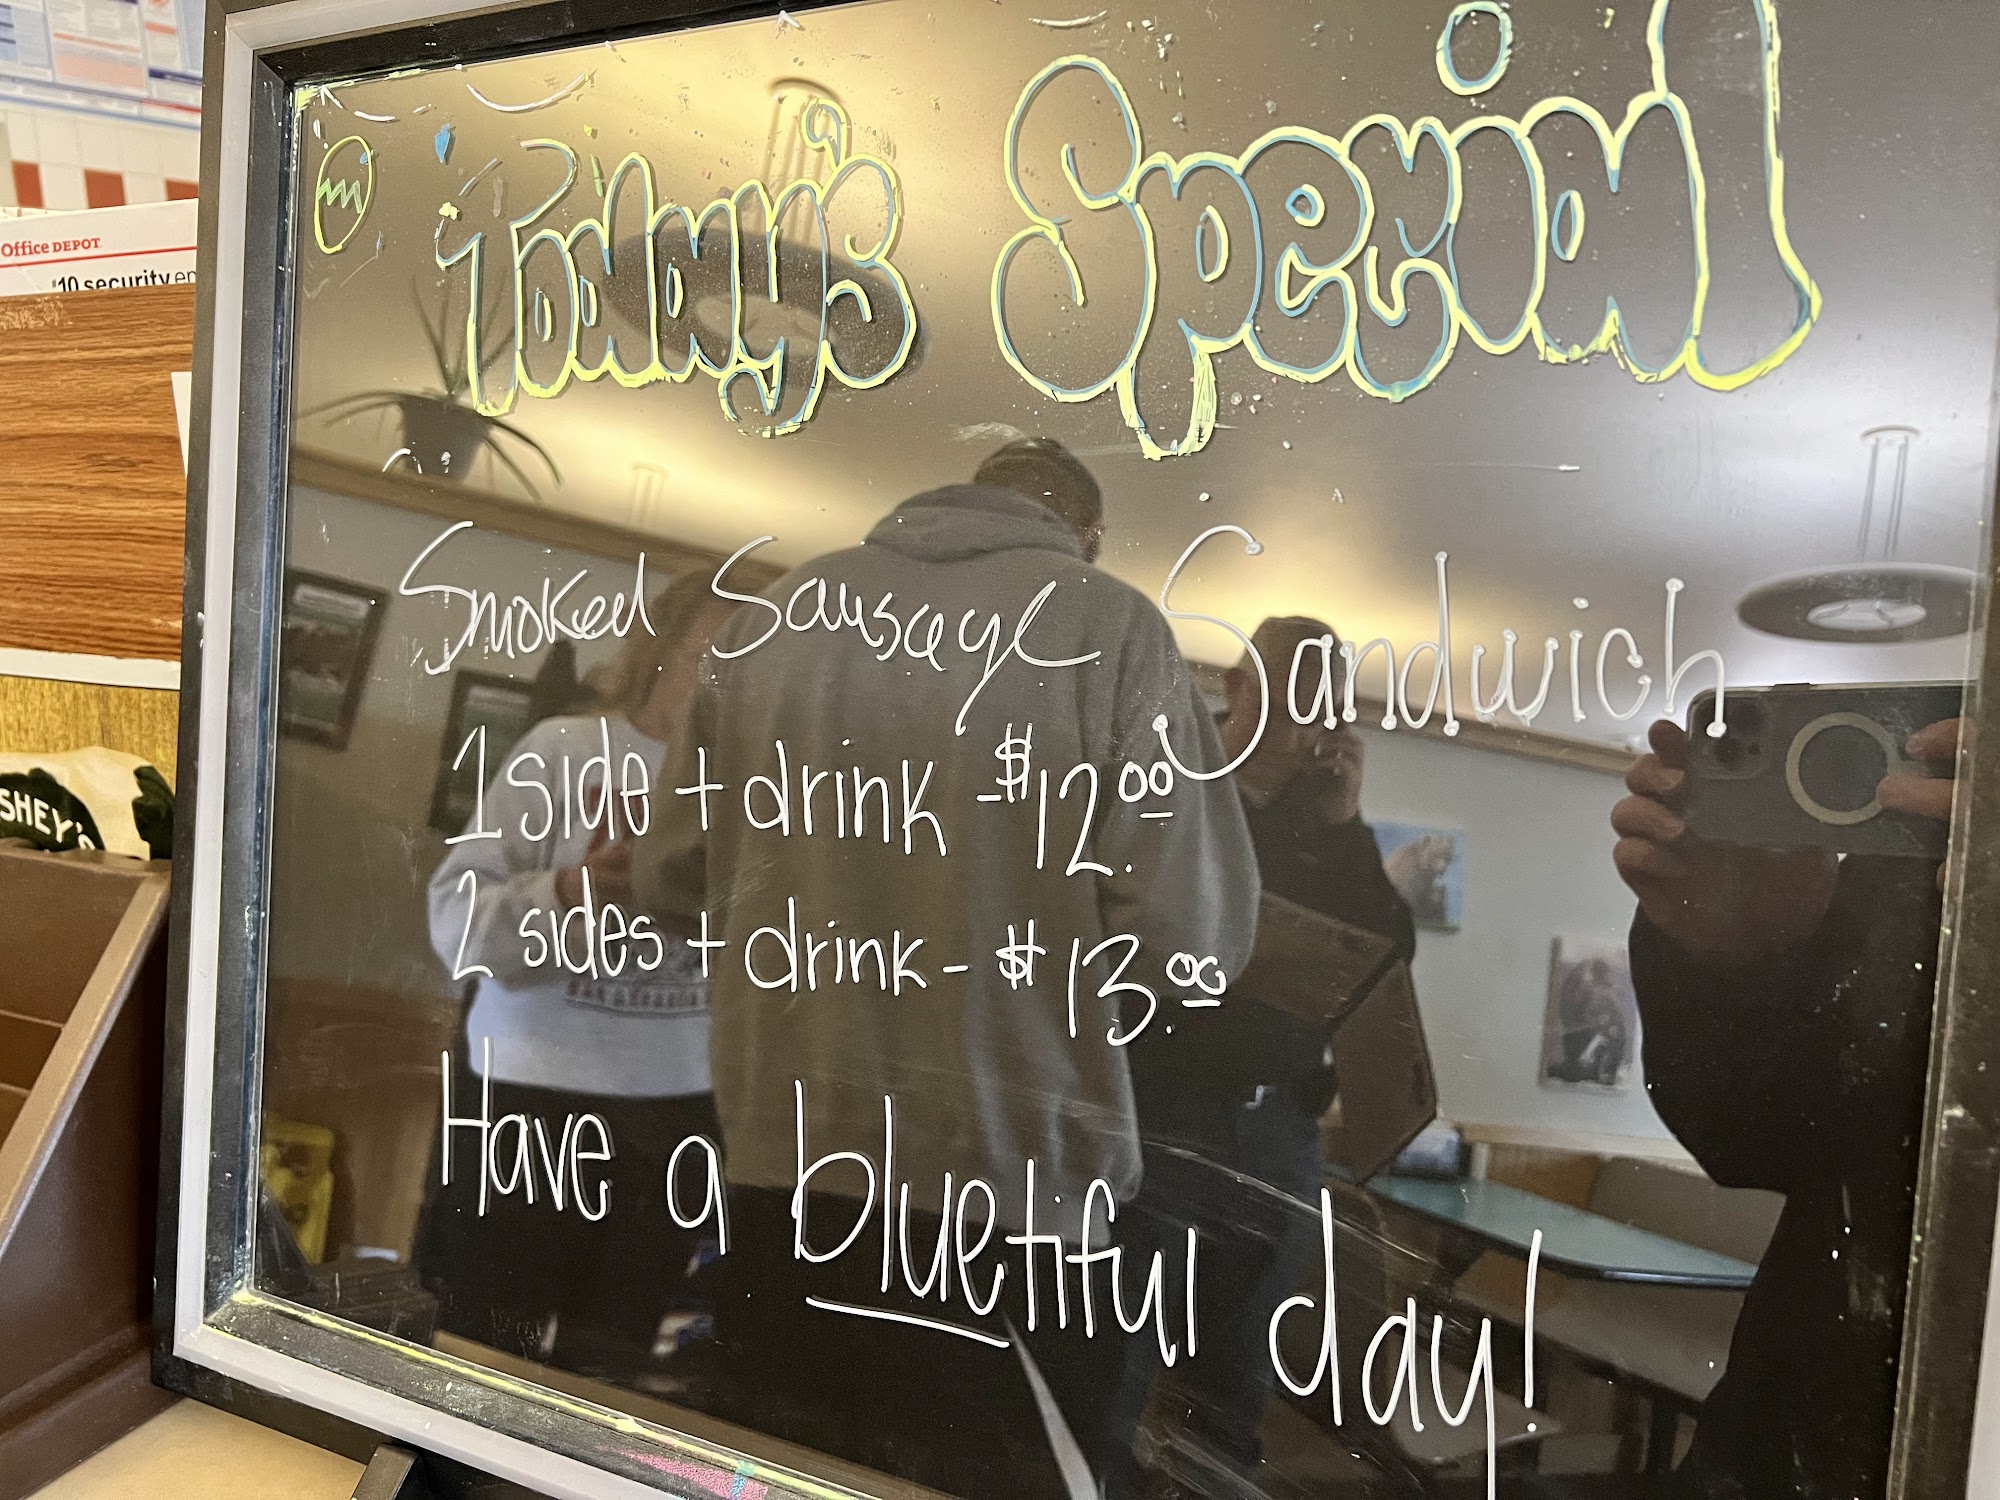 Office DEPOT
#10 security en
SHEY'S
Today's Special
Smoked Sausage Sandwich
1 side + drink - $12.00
2 sides + drink - $13.00
Have a bluetiful day!